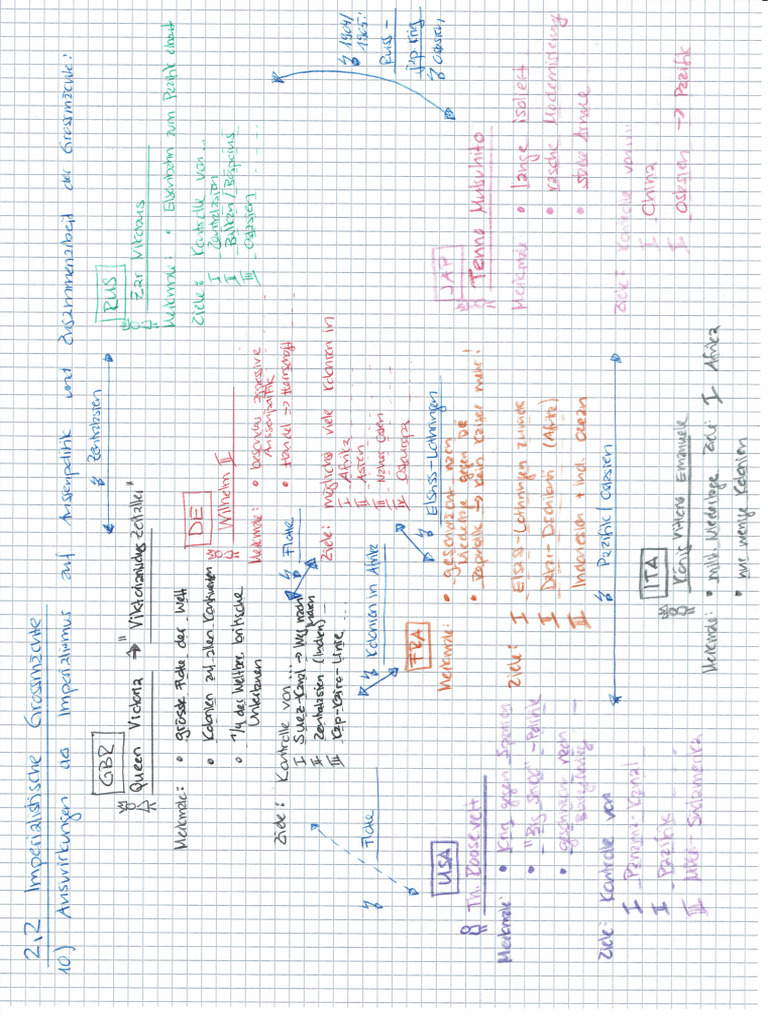 2.2 Imperialistische Grossmächte
10) Auswirkungen des Imperialismus auf Aussenpolitik und Zusammenarbeit der Grossmächte:
GBR
Queen Victoria → "Viktorianisches Zeitalter"
Merkmale: • grösste Flotte der Welt
• Kolonien auf allen Kontinenten
• 1/4 der Weltbev. britische
Untertanen
Ziele: Kontrolle von...
I Suez-Kanal → Weg nach
Indien
II Zentralasien (Indien)
III Kap-Kairo-Linie
Zentralasien
RUS
Zar Nikolaus
Merkmale: • Eisenbahn zum Pazifik erbaut
Ziele: Kontrolle von...
I Zentralasien
II Balkan/Bosporus
III Ostasien
1904/
1905:
Russ-
jap Krieg
Ostasien
DE
Wilhelm II
Merkmale: • besonders aggressive
Aussenpolitik
• Handel → Herrschaft
Ziele: möglichst viele Kolonien in
I Afrika
II Asien
III Naher Osten
IV Osteuropa
Flotte
Kolonien in Afrika
Elsass-Lothringen
Flotte
USA
Th. Roosevelt
Merkmale: • Krieg gegen Spanien
• "Big Stick"-Politik
• geschwächt nach
Bürgerkrieg
Ziele: Kontrolle von
I Panama-Kanal
II Pazifik
III Mittel- Südamerika
FRA
Merkmale: • geschwächt nach
Niederlage gegen DE
• Republik → kein Kaiser mehr!
Ziele: I Elsass-Lothringen zurück
II Dakar-Dschibuti (Afrika)
III Indonesien + ind. Ozean
JAP
Tenno Mutsuhito
Merkmale: • lange isoliert
• rasche Modernisierung
• starke Armee
Ziele: Kontrolle von...
I China
II Ostasien → Pazifik
Pazifik/Ostasien
ITA
König Vittorio Emanuele
Merkmale: • milit. Niederlage Ziele: I Afrika
• nur wenige Kolonien